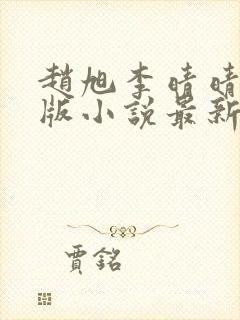 趙旭李晴晴
版小說最新
賈銘